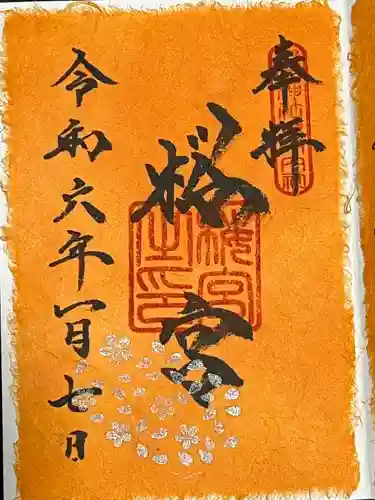 奉拝
桜宮
櫻宮之印
令和六年一月七日